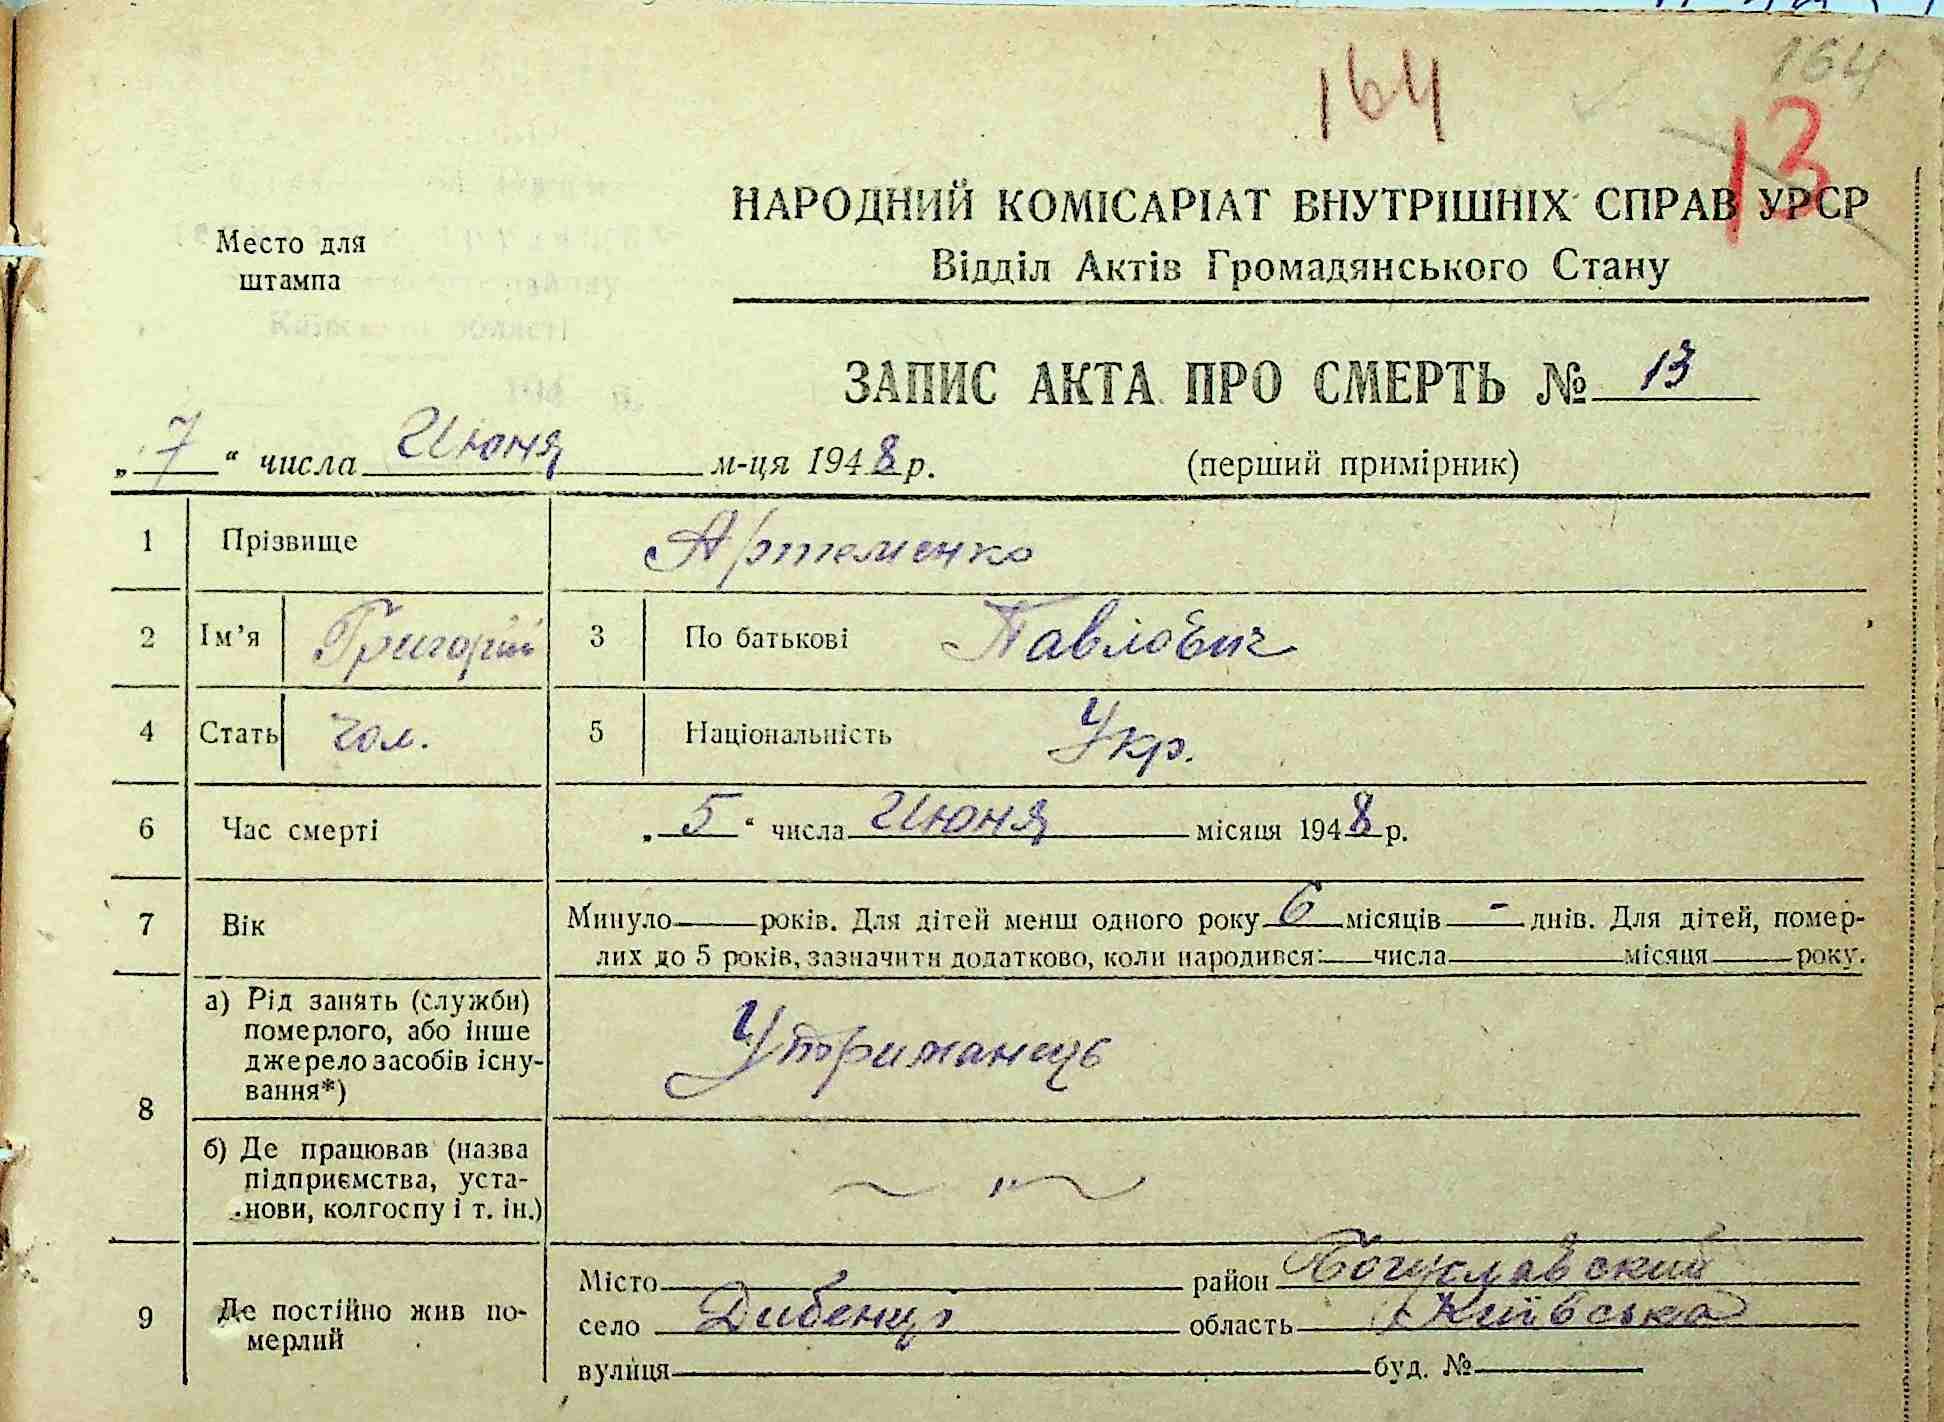 164
164
13
Место для
штампа
НАРОДНИЙ КОМІСАРІАТ ВНУТРІШНІХ СПРАВ УРСР
Відділ Актів Громадянського Стану
ЗАПИС АКТА ПРО СМЕРТЬ № 13
„7“ числа Июня м-ця 1948 р. (перший примірник)
1 Прізвище Артеменко
2 Ім’я Григорій 3 По батькові Павлович
4 Стать чол. 5 Національність Укр.
6 Час смерті „5“ числа Июня місяця 1948 р.
7 Вік Минуло років. Для дітей менш одного року 6 місяців - днів. Для дітей, помер-
лих до 5 років, зазначити додатково, коли народився: числа місяця року.
8 а) Рід занять (служби)
померлого, або інше
джерело засобів існу-
вання*)
Утриманець
б) Де працював (назва
підприємства, уста-
нови, колгоспу і т. ін.)
9 Де постійно жив по-
мерлий
Місто район Богуславский
село Дибенці область Київська
вулиця буд. №